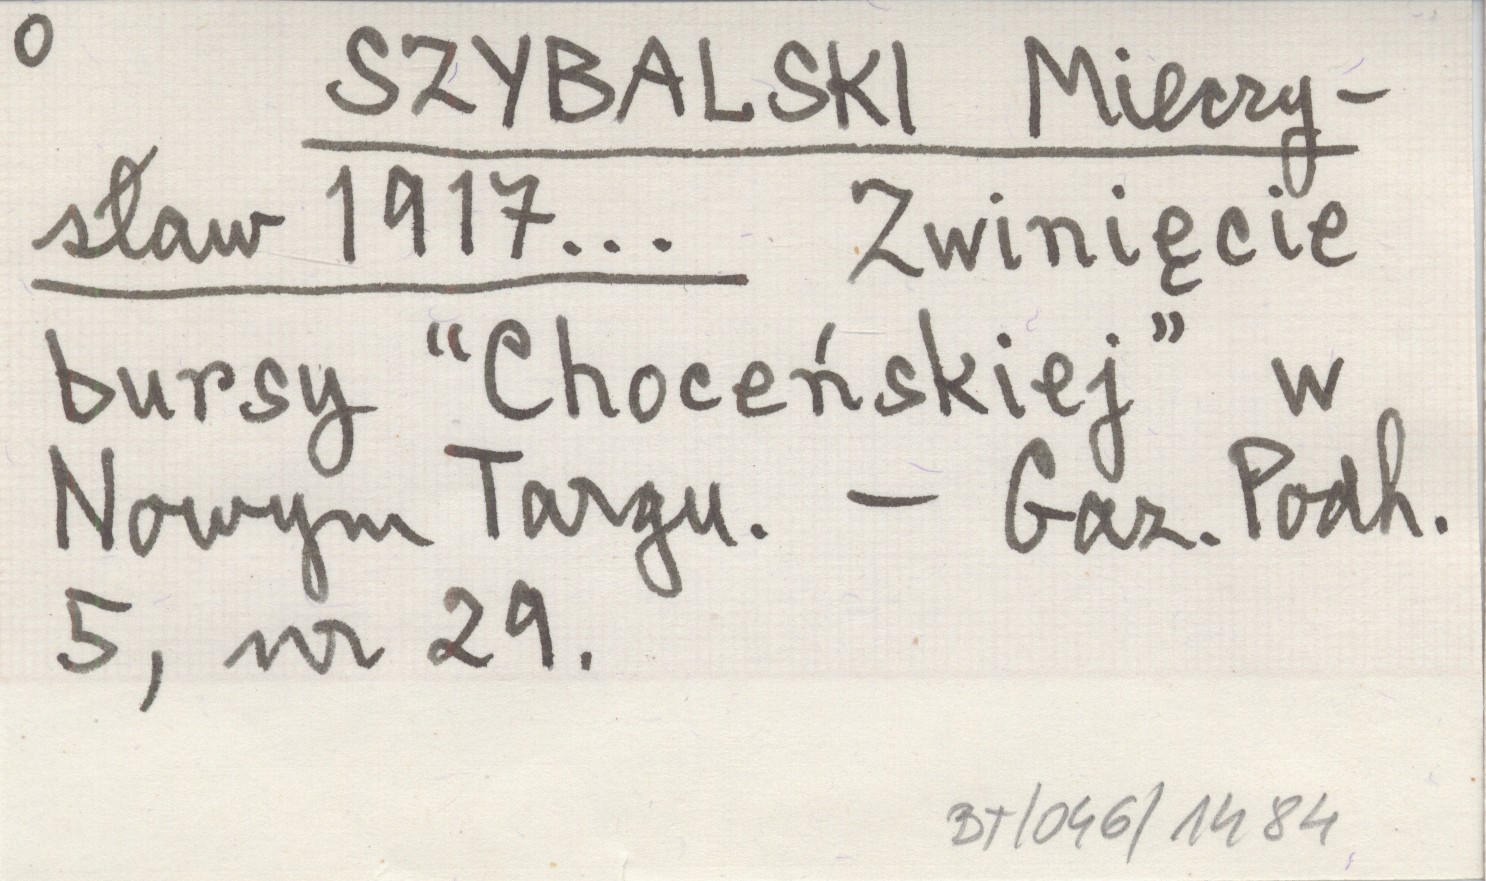 O
SZYBALSKI Mieczy-
sław 1917... Zwinięcie
bursy “Choceńskiej” w
Nowym Targu. — Gaz. Podh.
5, nr 29.
BT/046/1484